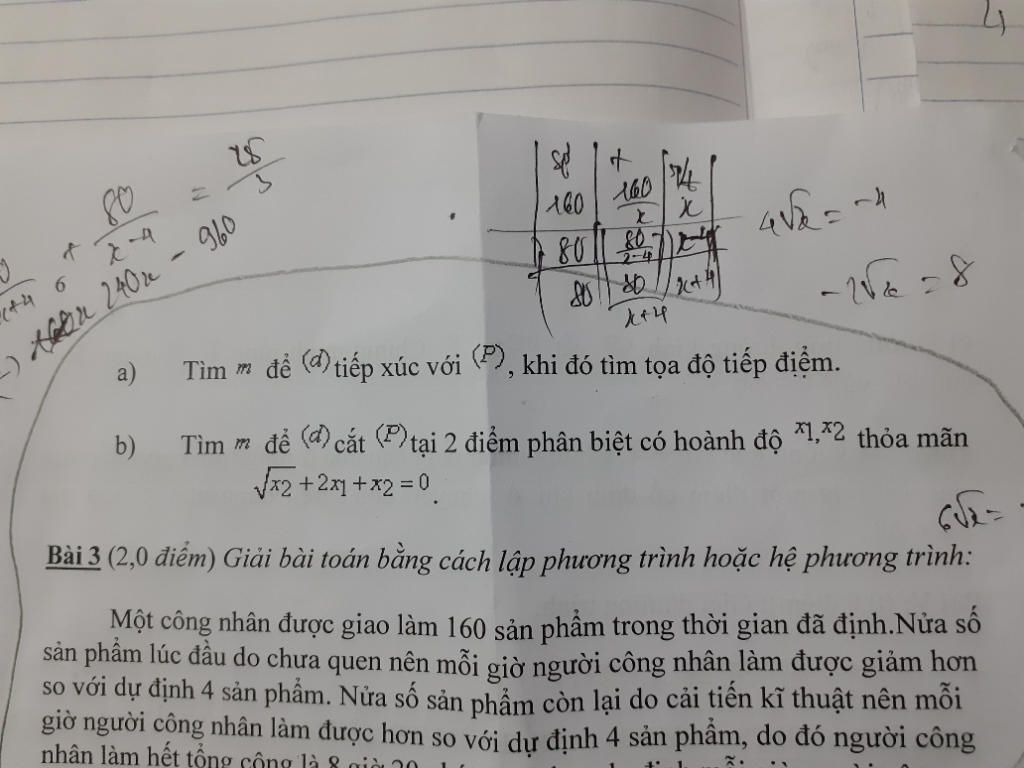 80/(x-4) = 25/3
x+4
240x - 960
sp
160 160/x x
80 80/(x-4) x-4
80 80/(x+4) x+4
4√x = -4
-2√x = 8
a) Tìm m để (d) tiếp xúc với (P), khi đó tìm tọa độ tiếp điểm.
b) Tìm m để (d) cắt (P) tại 2 điểm phân biệt có hoành độ x1, x2 thỏa mãn
√x2 + 2x1 + x2 = 0.
6√x =
Bài 3 (2,0 điểm) Giải bài toán bằng cách lập phương trình hoặc hệ phương trình:
Một công nhân được giao làm 160 sản phẩm trong thời gian đã định.Nửa số
sản phẩm lúc đầu do chưa quen nên mỗi giờ người công nhân làm được giảm hơn
so với dự định 4 sản phẩm. Nửa số sản phẩm còn lại do cải tiến kĩ thuật nên mỗi
giờ người công nhân làm được hơn so với dự định 4 sản phẩm, do đó người công
nhân làm hết tổng cộng là 8 giờ 20